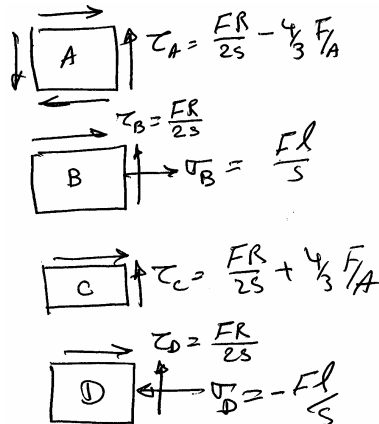 A τ_A = FR/2S - 4/3 F/A
τ_B = FR/2S
B σ_B = Fl/S
C τ_C = FR/2S + 4/3 F/A
τ_D = FR/2S
D σ_D = - Fl/S